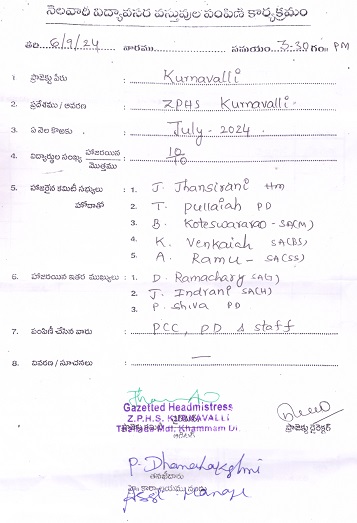 నెలవారీ విద్యావసర వస్తువుల పంపిణీ కార్యక్రమం
తేది 6/9/24 వారము సమయం 3-30 గం॥ PM
1 ప్రాజెక్టు పేరు Kurnavalli
2. ప్రదేశము / ఆవరణ ZPHS Kurnavalli.
3. ఏ నెల కొఱకు July - 2024
4. విద్యార్థుల సంఖ్య హాజరయిన / మొత్తము 10/10
5. హాజరైన కమిటీ సభ్యులు హోదాతో 1. J. Jhansirani Hm
2. T. pullaiah PD
3. B. Koteswararao - SA(M)
4. K. Venkaiah SA(BS)
5. A. Ramu - SA(SS)
6. హాజరయిన ఇతర ముఖ్యులు : 1. D. Ramachary
2. J. Indrani SA(H)
3. P. Shiva PD
7. పంపిణీ చేసిన వారు PCC, PD & staff
8. వివరణ / సూచనలు —
Gazetted Headmistress
Z.P.H.S. KURNAVALLI
Mdl. Khammam Dt.
ప్రాజెక్టు డైరెక్టర్
P. Dhanalakshmi